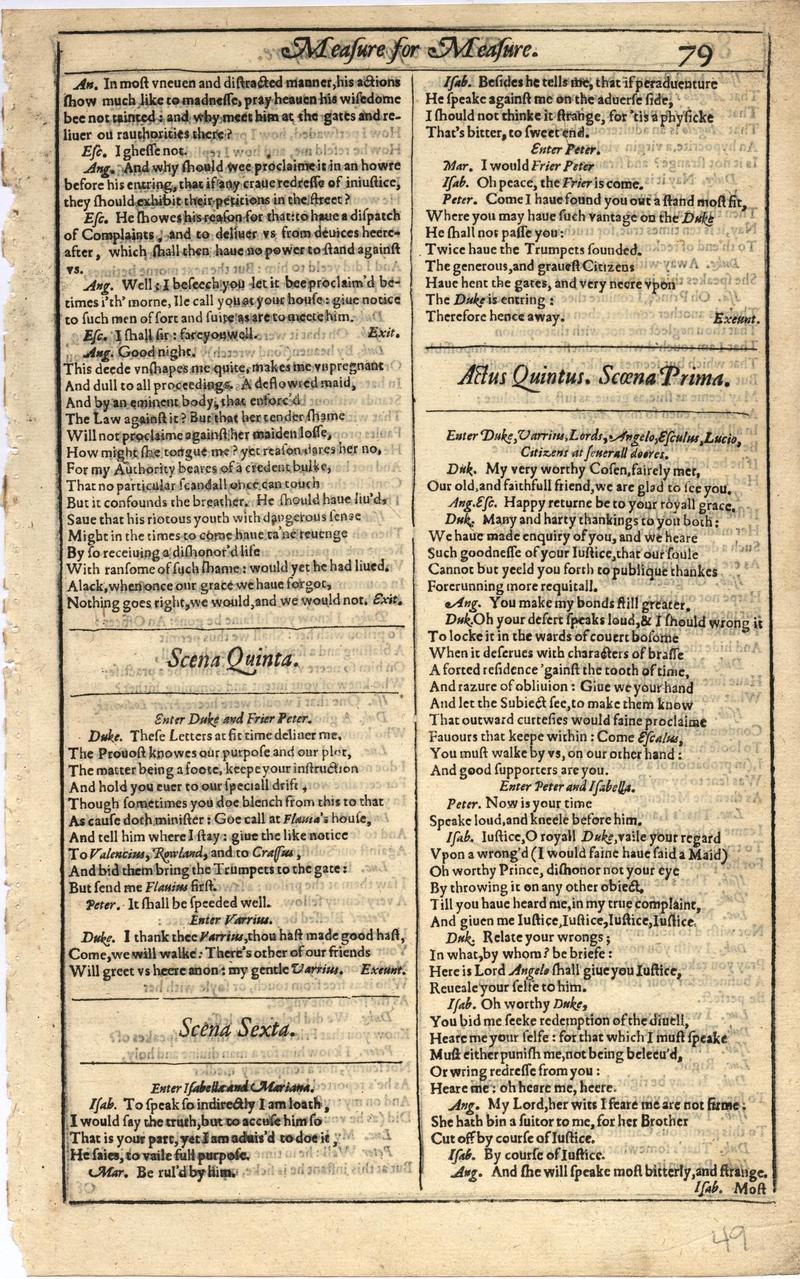 Meaſure for Meaſure. 79
An. In moſt vneuen and diſtracted manner, his actions
ſhow much like to madneſſe, pray heauen his wiſedome
bee not tainted: and why meet him at the gates and re-
liuer ou rauthorities there?
Eſc. I gheſſe not.
Ang. And why ſhould wee proclaime it in an howre
before his entring, that if any craue redreſſe of iniuſtice,
they ſhould exhibit their petitions in the ſtreet?
Eſc. He ſhowes his reaſon for that: to haue a diſpatch
of Complaints, and to deliuer vs from deuices heere-
after, which ſhall then haue no power to ſtand againſt
vs.
Ang. Well: I beſeech you let it bee proclaim'd be-
times i'th' morne, Ile call you at your houſe: giue notice
to ſuch men of ſort and ſuite as are to meete him.
Eſc. I ſhall ſir: fareyouwell. Exit.
Ang. Good night.
This deede vnſhapes me quite, makes me vnpregnant
And dull to all proceedings. A deflowred maid,
And by an eminent body, that enforc'd
The Law againſt it? But that her tender ſhame
Will not proclaime againſt her maiden loſſe,
How might ſhe tongue me? yet reaſon dares her no,
For my Authority beares of a credent bulke,
That no particular ſcandall once can touch
But it confounds the breather. He ſhould haue liu'd,
Saue that his riotous youth with dangerous ſenſe
Might in the times to come haue ta'ne reuenge
By ſo receiuing a diſhonor'd life
With ranſome of ſuch ſhame: would yet he had liued.
Alack, when once our grace we haue forgot,
Nothing goes right, we would, and we would not. Exit.
Scena Quinta.
Enter Duke and Frier Peter.
Duke. Theſe Letters at fit time deliuer me,
The Prouoſt knowes our purpoſe and our plot,
The matter being a foote, keepe your inſtruction
And hold you euer to our ſpeciall drift,
Though ſometimes you doe blench from this to that
As cauſe doth miniſter: Goe call at Flauia's houſe,
And tell him where I ſtay: giue the like notice
To Valencius, Rowland, and to Craſſus,
And bid them bring the Trumpets to the gate:
But ſend me Flauius firſt.
Peter. It ſhall be ſpeeded well.
Enter Varrius.
Duke. I thank thee Varrius, thou haſt made good haſt,
Come, we will walke: There's other of our friends
Will greet vs heere anon: my gentle Varrius. Exeunt.
Scena Sexta.
Enter Iſabella and Mariana.
Iſab. To ſpeak ſo indirectly I am loath,
I would ſay the truth, but to accuſe him ſo
That is your part, yet I am aduis'd to doe it,
He ſaies, to vaile full purpoſe.
Mar. Be rul'd by him.
Iſab. Beſides he tells me, that if peraduenture
He ſpeake againſt me on the aduerſe ſide,
I ſhould not thinke it ſtrange, for 'tis a phyſicke
That's bitter, to ſweet end.
Enter Peter.
Mar. I would Frier Peter
Iſab. Oh peace, the Frier is come.
Peter. Come I haue found you out a ſtand moſt fit,
Where you may haue ſuch vantage on the Duke
He ſhall not paſſe you:
Twice haue the Trumpets ſounded.
The generous, and graueſt Citizens
Haue hent the gates, and very neere vpon
The Duke is entring:
Therefore hence away. Exeunt.
Actus Quintus. Scœna Prima.
Enter Duke, Varrius, Lords, Angelo, Eſculus, Lucio,
Citizens at ſeuerall doores.
Duk. My very worthy Coſen, fairely met,
Our old, and faithfull friend, we are glad to ſee you.
Ang. Eſc. Happy returne be to your royall grace.
Duk. Many and harty thankings to you both:
We haue made enquiry of you, and we heare
Such goodneſſe of your Iuſtice, that our ſoule
Cannot but yeeld you forth to publique thankes
Forerunning more requitall.
Ang. You make my bonds ſtill greater.
Duk. Oh your deſert ſpeaks loud, & I ſhould wrong it
To locke it in the wards of couert boſome
When it deſerues with characters of braſſe
A forted reſidence 'gainſt the tooth of time,
And razure of obliuion: Giue we your hand
And let the Subiect ſee, to make them know
That outward curteſies would faine proclaime
Fauours that keepe within: Come Eſcalus,
You muſt walke by vs, on our other hand:
And good ſupporters are you.
Enter Peter and Iſabella.
Peter. Now is your time
Speake loud, and kneele before him.
Iſab. Iuſtice, O royall Duke, vaile your regard
Vpon a wrong'd (I would faine haue ſaid a Maid)
Oh worthy Prince, diſhonor not your eye
By throwing it on any other obiect,
Till you haue heard me, in my true complaint,
And giuen me Iuſtice, Iuſtice, Iuſtice, Iuſtice.
Duk. Relate your wrongs;
In what, by whom? be briefe:
Here is Lord Angelo ſhall giue you Iuſtice,
Reueale your ſelfe to him.
Iſab. Oh worthy Duke,
You bid me ſeeke redemption of the diuell,
Heare me your ſelfe: for that which I muſt ſpeake
Muſt either puniſh me, not being beleeu'd,
Or wring redreſſe from you:
Heare me: oh heare me, heere.
Ang. My Lord, her wits I feare me are not firme:
She hath bin a ſuitor to me, for her Brother
Cut off by courſe of Iuſtice.
Iſab. By courſe of Iuſtice.
Ang. And ſhe will ſpeake moſt bitterly, and ſtrange.
Iſab. Moſt
49